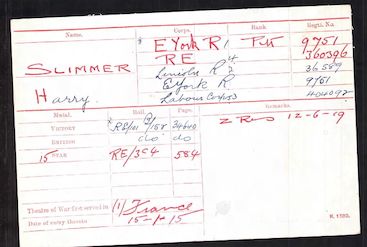 Name. Corps. Rank. Regtl. No.
E York R Pte 9751
SLIMMER RE 360396
Lincoln R 36589
E York R 9751
Harry. Labour Corps 404092
Medal. Roll. Page. Remarks.
VICTORY RE/101 34640 Z Res 12-6-19
BRITISH do do
15 STAR RE/354 584
Theatre of War first served in (1) France
Date of entry therein 15-1-15
K. 1380.